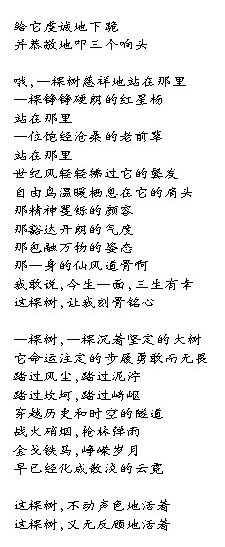 给它虔诚地下跪
并恭敬地叩三个响头
哦,一棵树慈祥地站在那里
一棵铮铮硬朗的红星杨
站在那里
一位饱经沧桑的老前辈
站在那里
世纪风轻轻拂过它的鬓发
自由鸟温暖栖息在它的肩头
那精神矍铄的颜容
那豁达开朗的气度
那包融万物的姿态
那一身的仙风道骨啊
我敢说,今生一面,三生有幸
这棵树,让我刻骨铭心
一棵树,一棵沉着坚定的大树
它命运注定的步履勇敢而无畏
踏过风尘,踏过泥泞
踏过坎坷,踏过崎岖
穿越历史和时空的隧道
战火硝烟,枪林弹雨
金戈铁马,峥嵘岁月
早已经化成散淡的云霓
这棵树,不动声色地活着
这棵树,义无反顾地活着